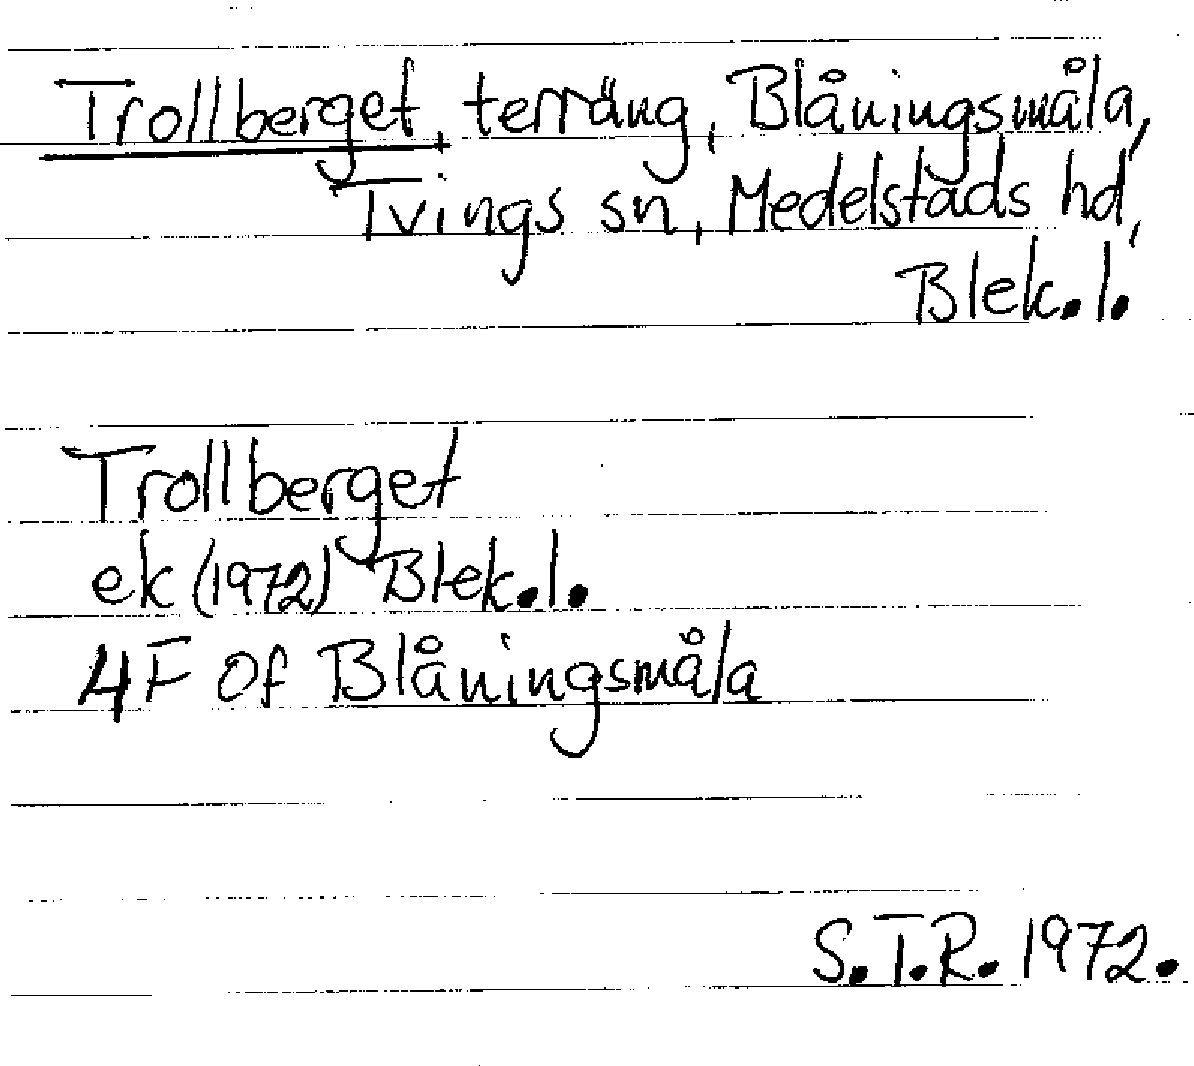 Trollberget, terräng, Blåningsmåla,
Tvings sn, Medelstads hd,
Blek.l.
Trollberget
ek (1972) Blek.l.
4F 0f Blåningsmåla
S.T.R. 1972.